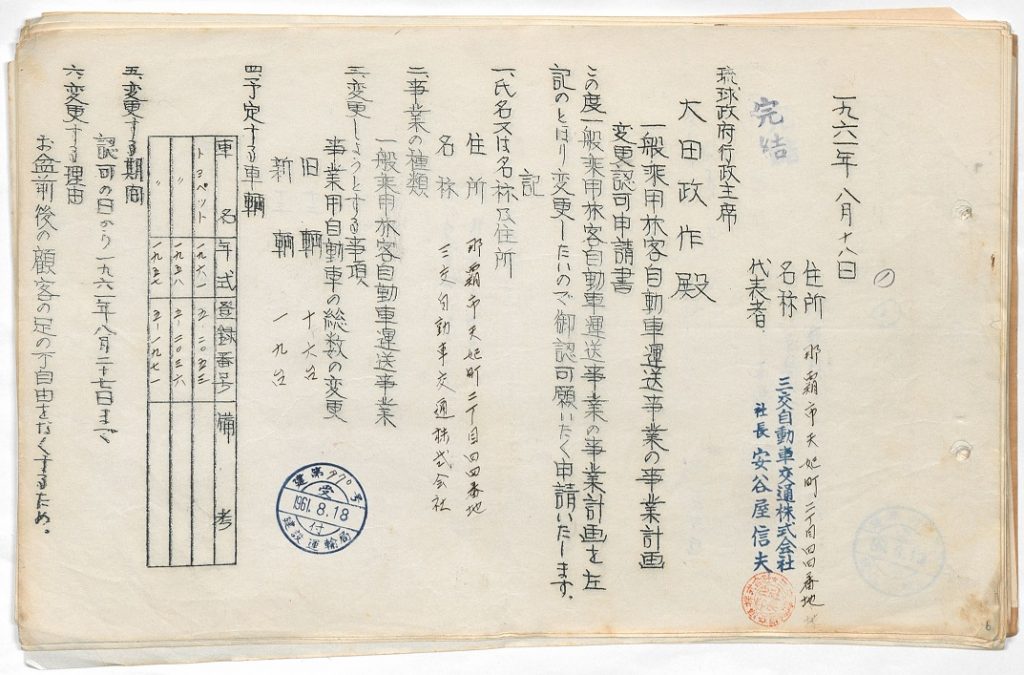 一九六一年八月十八日
完結
住所 那覇市天妃町二丁目四四番地
名称 三交自動車交通株式会社
代表者 社長 安谷屋信夫
琉球政府行政主席
大田政作殿
一般乗用旅客自動車運送事業の事業計画
変更認可申請書
この度一般乗用旅客自動車運送事業の事業計画を左
記のとほり変更したいので御認可願いたく申請いたします。
記
一、氏名又は名称及住所
住所 那覇市天妃町二丁目四四番地
名称 三交自動車交通株式会社
二、事業の種類
一般乗用旅客自動車運送事業
三、変更しようとする事項
事業用自動車の総数の変更
旧輌 十六台
新輌 一九台
建第970号
受
1961.8.18
付
建設運輸局
四、予定する車輌
車名 年式 登録番号 備考
トヨペット 一九六一 五-二〇五三
〃 一九五八 五-二〇三六
〃 一九五七 五-一九七一
五、変更する期間
認可の日から一九六一年八月二十七日まで
六、変更する理由
お盆前後の顧客の足の不自由をなくするため。